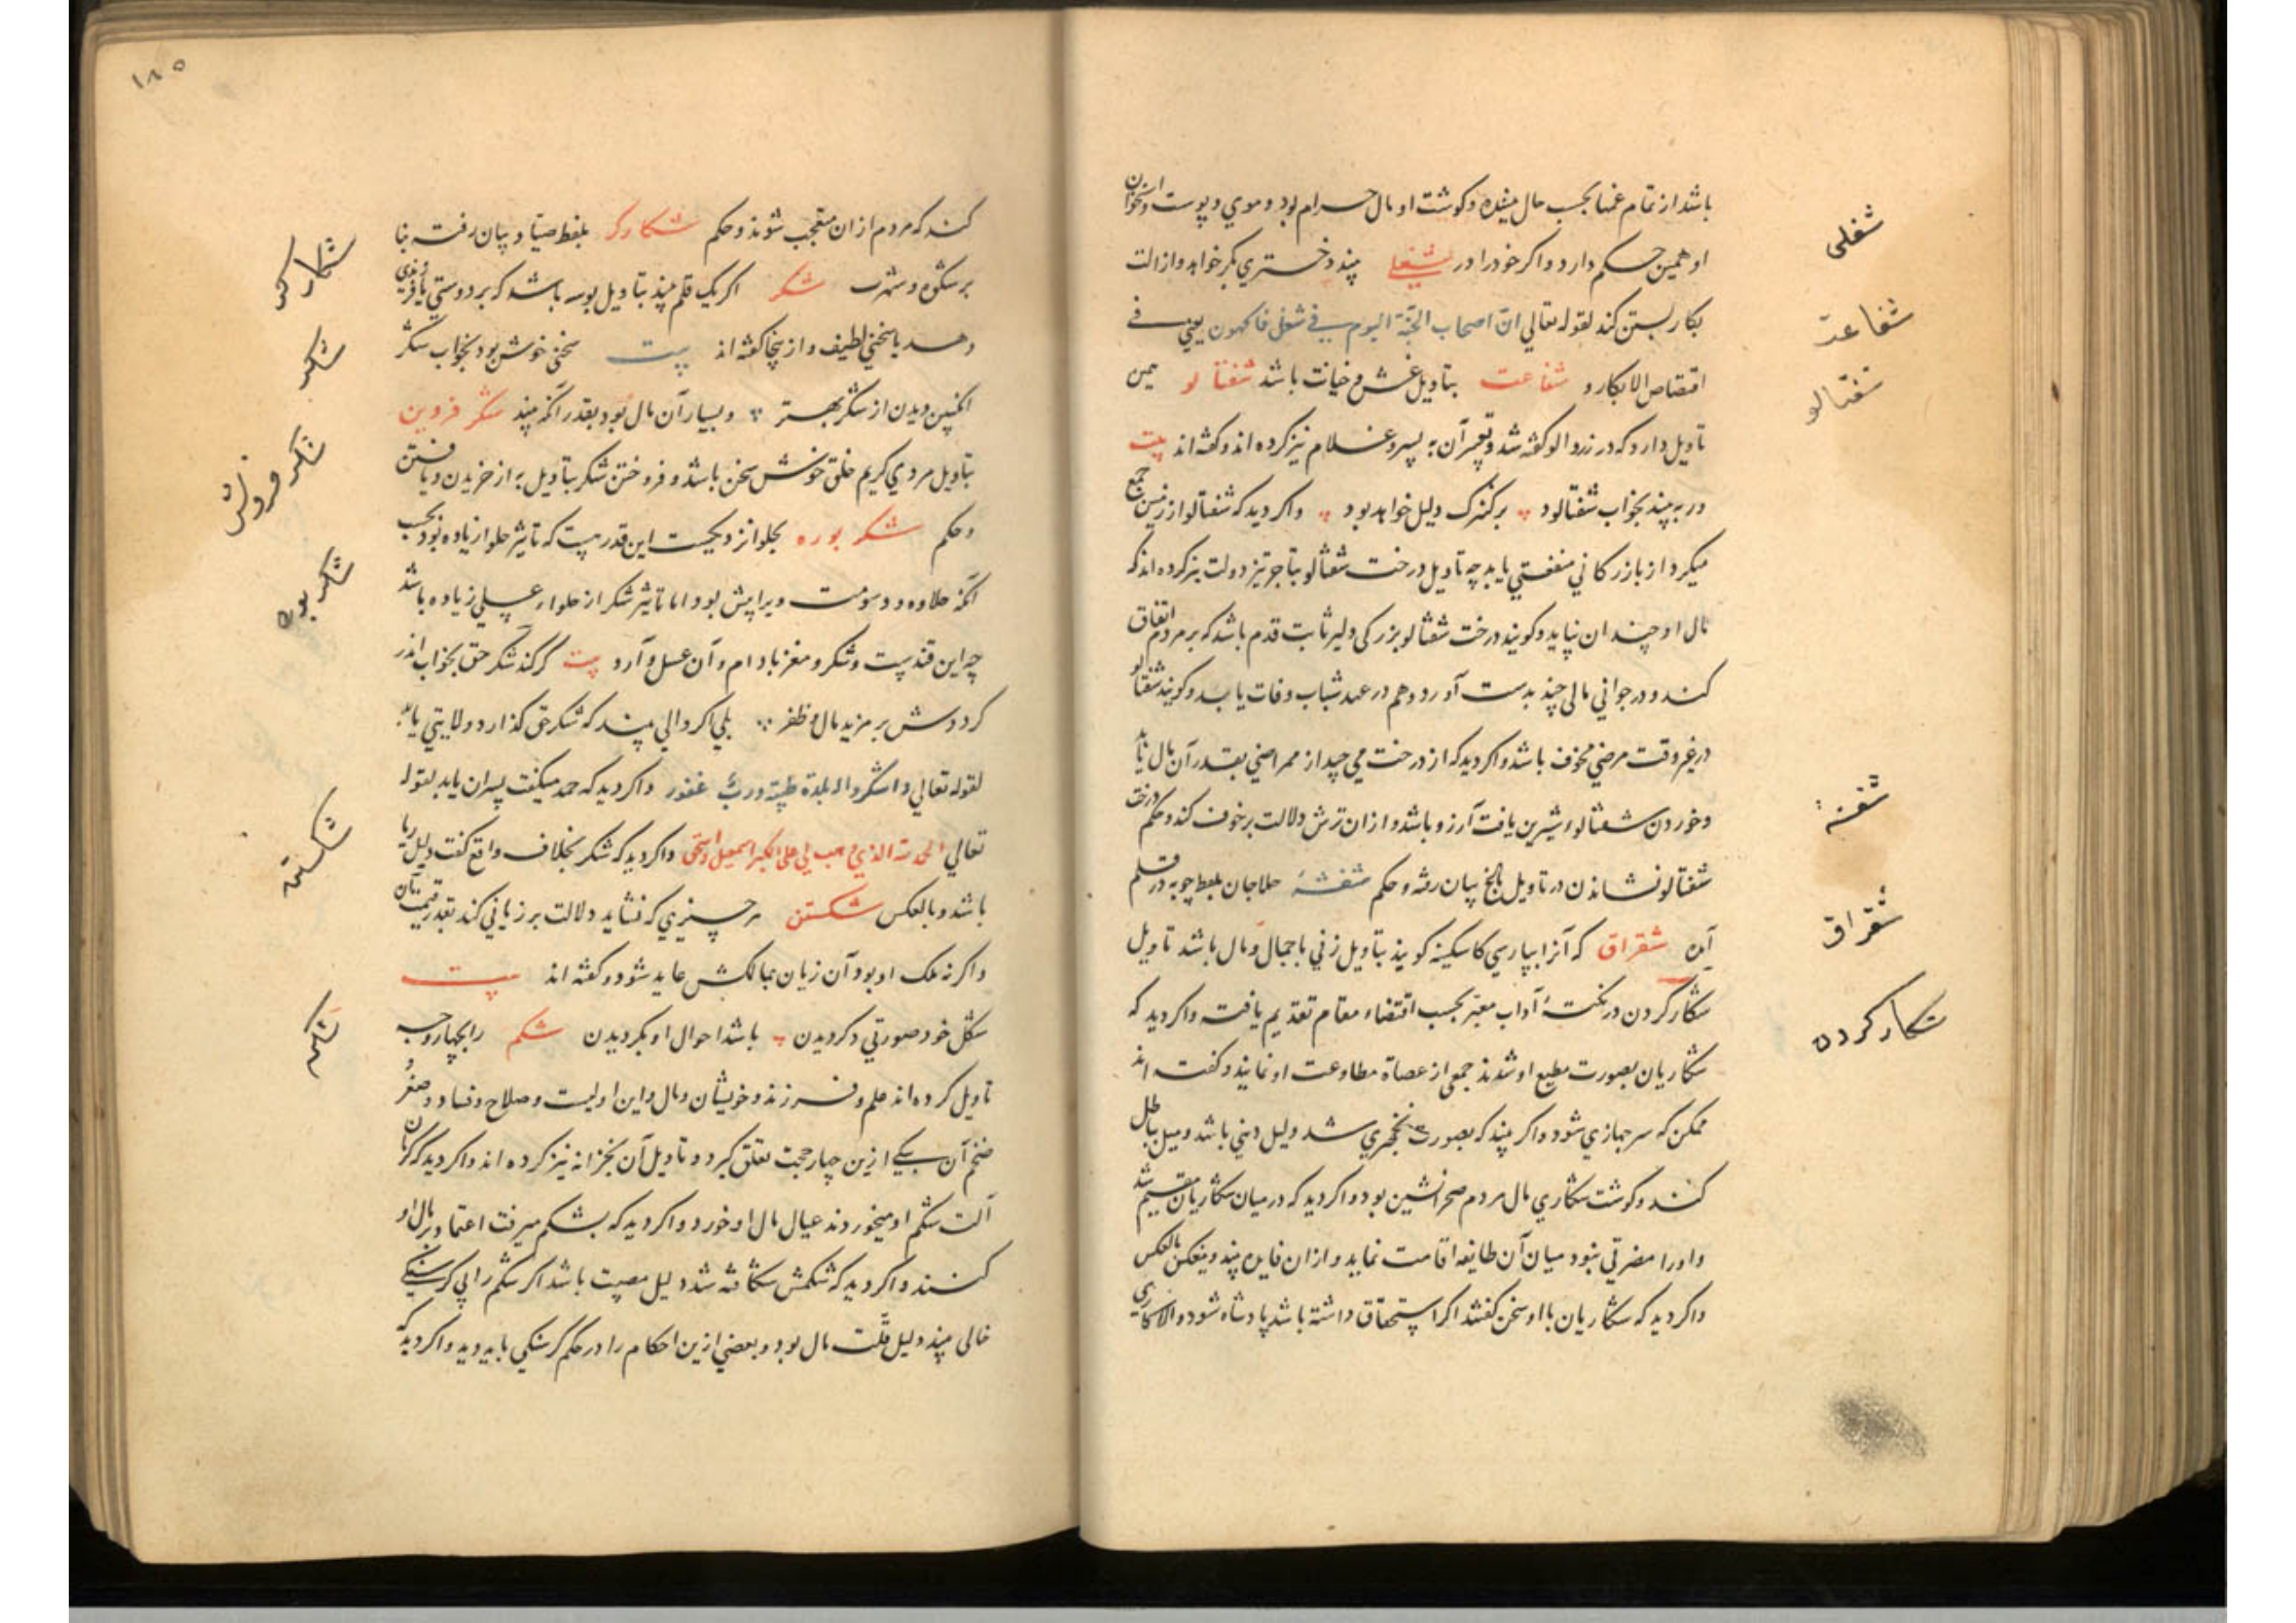 باشد از تمام غمها بحسب حال بیننده و گوشت او مال حرام بود و موی و پوست و استخوان
او همین حکم دارد و اگر خود را در شغلی بیند دختری بکر خواهد و ازالت
بکارتش کند لقوله تعالی ان اصحاب الجنة الیوم فی شغل فاکهون یعنی فی
اقتضاض الابکار و شفاعت بتاویل غش و خیانت باشد شفتالو همین
تاویل دارد که در زردالو گفته شد و تعبیر آن به پسر و غلام نیز کرده اند و گفته اند بیت
در به بیند بخواب شفتالود بر کنیزک دلیل خواهد بود و اگر دید که شفتالو از زمین جمع
میکرد از بازرگانی منفعتی یابد چه تاویل درخت شفتالو بتاجر تیز دولت نیز کرده اند که
مال او چندان نپاید و گویند درخت شفتالو بزرگی دلیر ثابت قدم باشد که بر مردم انفاق
کند و در جوانی مالی چند بدست آورد و هم در عهد شباب وفات یابد و گویند شفتالو
در غیر وقت مرضی مخوف باشد و اگر دید که از درخت می چید از ممراضی بقدر آن مال یابد
و خوردن شفتالوء شیرین یافت آرزو باشد و از ان ترش دلالت بر خوف کند و حکم درخت
شفتالو نشاندن در تاویل بیان رفته و حکم شفشهٔ حلاجان بلفظ چوبه در قلم
آمده شقراق که آنرا بپارسی کاسکینه گویند بتاویل زنی باجمال و مال باشد تاویل
شکار کردن در نکتهٔ آداب معبر بحسب اقتضاء مقام تقدیم یافت و اگر دید که
شکاریان بصورت مطیع او شدند جمعی از عصاة مطاوعت او نمایند و گفته اند
ممکن که سرجهازی شود و اگر بیند که بصورت نخجیری شد دلیل دینی باشد و میل بباطل
کند و گوشت شکاری مال مردم صحرانشین بود و اگر دید که در میان شکاریان مقیم شد
و او را مضرتی نبود میان آن طایفه اقامت نماید و از ان فایده بیند و ینعکس بالعکس
و اگر دید که شکاریان با او سخن گفتند اگر استحقاق داشته باشد پادشاه شود و الا کاری
شغلی
شفاعت
شفتالو
شفشهٔ
شقراق
شکار کردن
۱۸۵
کند که مردم از ان متعجب شوند و حکم شکارگر بلفظ صیاد بیان رفت بنا
بر شکوه و شهرت شکر اگر یک قلم بیند بتاویل بوسه باشد که بر دوستی یا فرزندی
دهد یا سخنی لطیف و از ینجا گفته اند بیت سخن خوش بود بخواب شکر
انگبین دیدن از شکر بهتر و بسیار آن مال بود بقدر آنکه بیند شکر فروش
بتاویل مردی کریم خلق خوش سخن باشد و فروختن شکر بتاویل به از خریدن و یافتن
و حکم شکر بوره بحلوا نزدیکست این قدر هست که تاثیر حلوا زیاده بود بحسب
آنکه حلاوه و دسومت ویرا بیش بود اما تاثیر شکر از حلواء عسلی زیاده باشد
چه این قند پست و شکر و مغز بادام و آن عسل و آرد بیت گر کند شکر حق بخواب اندر
گرددش بر مزید مال و ظفر بلی اگر والی بیند که شکر حق گذارد ولایتی یابد
لقوله تعالی و اشکروا له بلدة طیبة و رب غفور و اگر دید که حمد میگفت پسران یابد لقوله
تعالی الحمد لله الذی وهب لی علی الکبر اسمعیل و اسحق و اگر دید که شکر بخلاف واقع گفت دلیل ریا
باشد و بالعکس شکستن هر چیزی که نشاید دلالت بر زیانی کند بقدر قیمت آن
و اگر نه ملک او بود آن زیان بمالکش عاید شود و گفته اند بیت
شکل خود صورتی دگر دیدن باشد احوال او بگردیدن شکم را بچهار وجه
تاویل کرده اند علم و فرزند و خویشان و مال و این اولیست و صلاح و فساد و صغر و
ضخم آن بیکی ازین چهار حجت تعلق گیرد و تاویل آن بخزانه نیز کرده اند و اگر دید که کرمان
آلت شکم او میخوردند عیال مال او خورد و اگر دید که بشکم میرفت اعتماد بر مال او
کنند و اگر دید که شکمش شکافته شد دلیل مصیبت باشد اگر شکم را بی گرسنگی
خالی بیند دلیل قلت مال بود و بعضی ازین احکام را در حکم گرسنگی باید دید و اگر دید که
شکارگر
شکر
شکر فروش
شکر بوره
شکستن
شکم